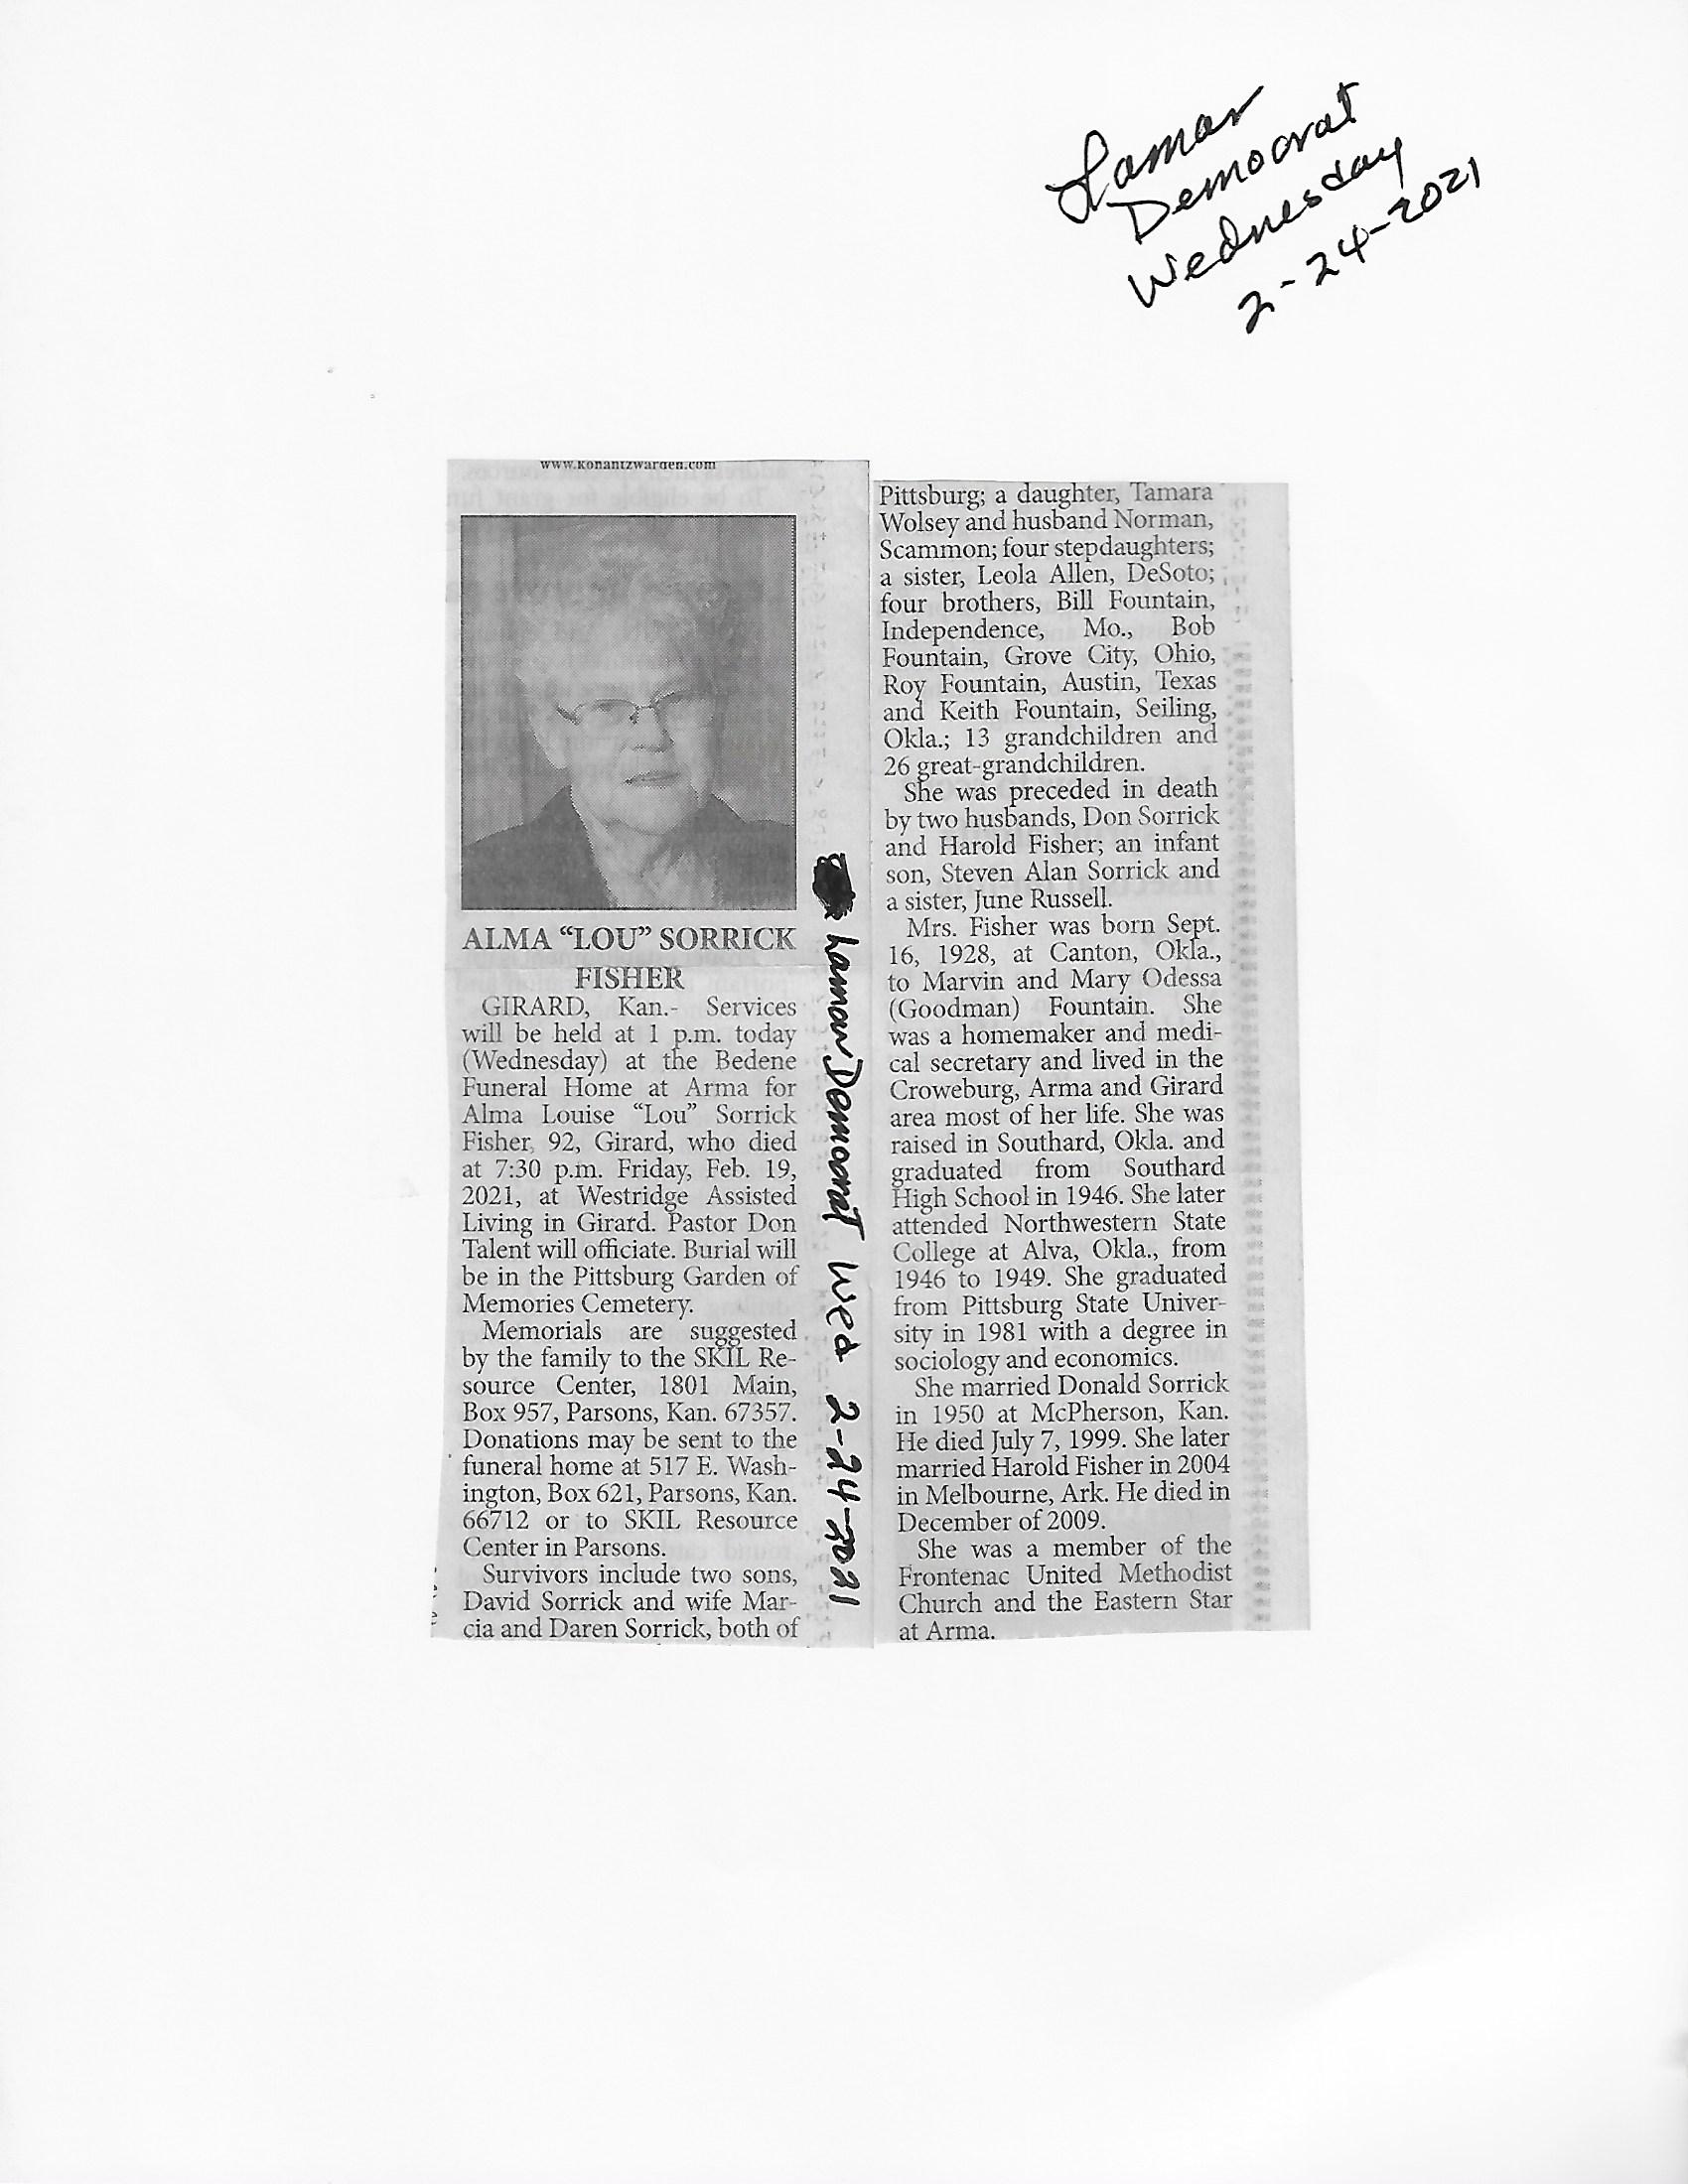 Lamar
Democrat
Wednesday
2-24-2021
www.konantzwarden.com
ALMA “LOU” SORRICK
FISHER
GIRARD, Kan.- Services
will be held at 1 p.m. today
(Wednesday) at the Bedene
Funeral Home at Arma for
Alma Louise “Lou” Sorrick
Fisher, 92, Girard, who died
at 7:30 p.m. Friday, Feb. 19,
2021, at Westridge Assisted
Living in Girard. Pastor Don
Talent will officiate. Burial will
be in the Pittsburg Garden of
Memories Cemetery.
Memorials are suggested
by the family to the SKIL Re-
source Center, 1801 Main,
Box 957, Parsons, Kan. 67357.
Donations may be sent to the
funeral home at 517 E. Wash-
ington, Box 621, Parsons, Kan.
66712 or to SKIL Resource
Center in Parsons.
Survivors include two sons,
David Sorrick and wife Mar-
cia and Daren Sorrick, both of
Lamar Democrat Wed 2-24-2021
Pittsburg; a daughter, Tamara
Wolsey and husband Norman,
Scammon; four stepdaughters;
a sister, Leola Allen, DeSoto;
four brothers, Bill Fountain,
Independence, Mo., Bob
Fountain, Grove City, Ohio,
Roy Fountain, Austin, Texas
and Keith Fountain, Seiling,
Okla.; 13 grandchildren and
26 great-grandchildren.
She was preceded in death
by two husbands, Don Sorrick
and Harold Fisher; an infant
son, Steven Alan Sorrick and
a sister, June Russell.
Mrs. Fisher was born Sept.
16, 1928, at Canton, Okla.,
to Marvin and Mary Odessa
(Goodman) Fountain. She
was a homemaker and medi-
cal secretary and lived in the
Croweburg, Arma and Girard
area most of her life. She was
raised in Southard, Okla. and
graduated from Southard
High School in 1946. She later
attended Northwestern State
College at Alva, Okla., from
1946 to 1949. She graduated
from Pittsburg State Univer-
sity in 1981 with a degree in
sociology and economics.
She married Donald Sorrick
in 1950 at McPherson, Kan.
He died July 7, 1999. She later
married Harold Fisher in 2004
in Melbourne, Ark. He died in
December of 2009.
She was a member of the
Frontenac United Methodist
Church and the Eastern Star
at Arma.